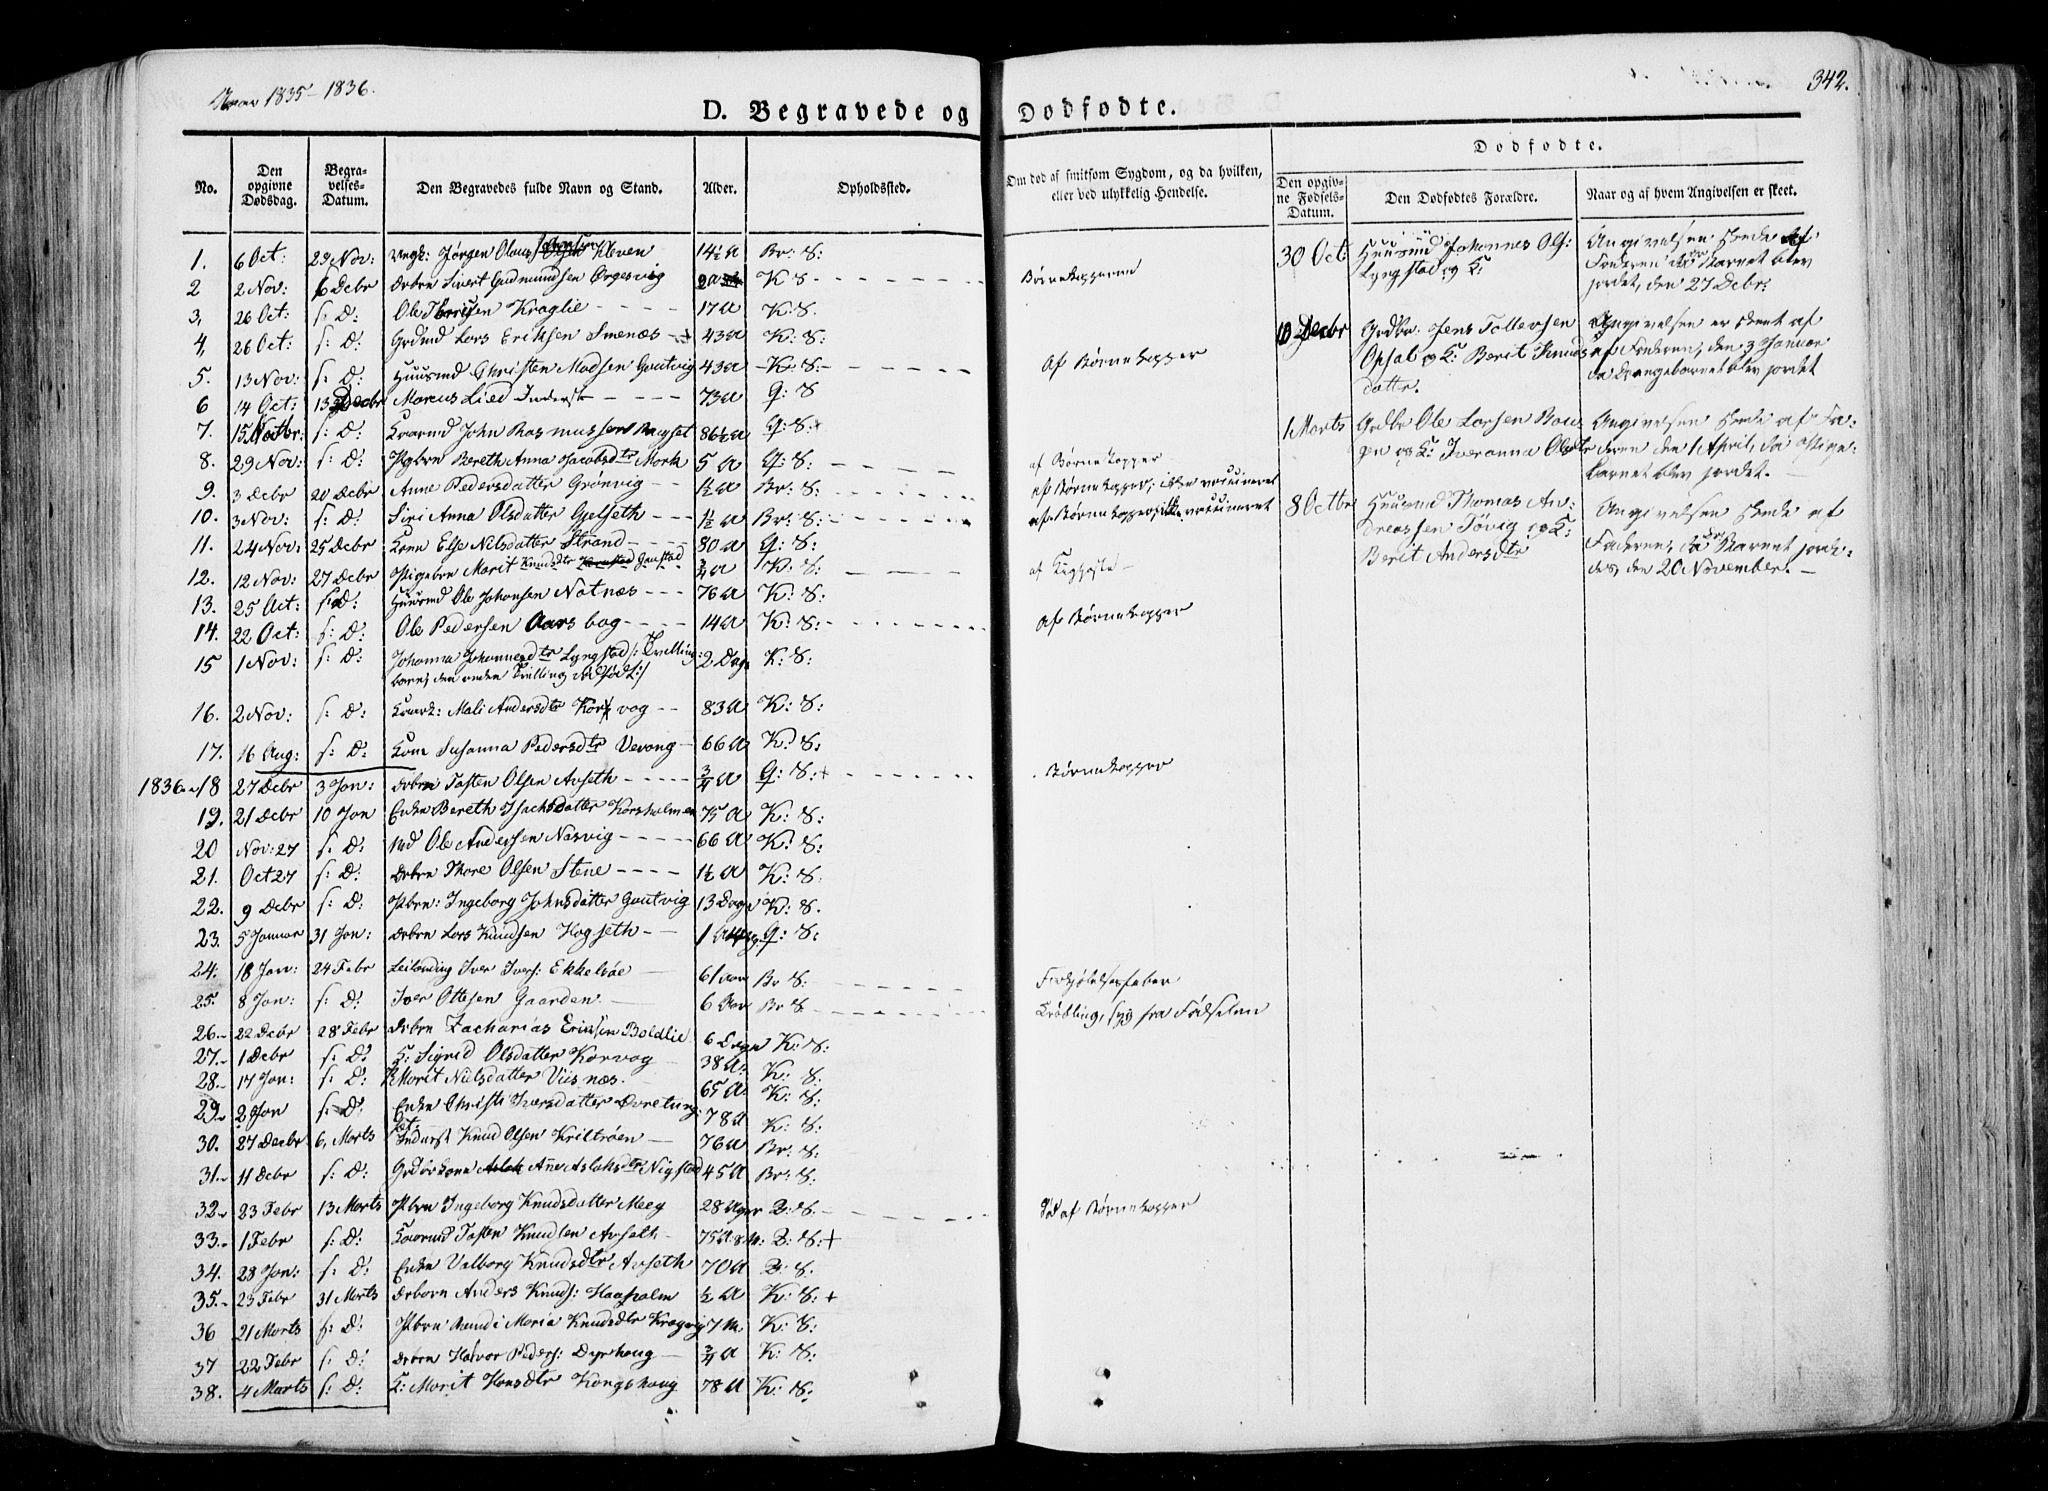 Aar 1835-1836.
342.
D. Begravede og Dødfødte.
No.
Den opgivne Dødsdag.
Begravelses-Datum.
Den Begravedes fulde Navn og Stand.
Alder.
Opholdssted.
Om død af smitsom Sygdom, og da hvilken, eller ved ulykkelig Hendelse.
Dødfødte.
Den opgivne Fødsels-Datum.
Den Dødfødtes Forældre.
Naar og af hvem Angivelsen er skeet.
1. 6 Oct: 29 Nov: Ungk: Jørgen Olaus Kleven 14½ A Br: S:
2 2 Nov: 6 Debr Drbrn Sivert Gudmundsen Ørgesvig K S - Børnekopperne
3, 26 Oct: s: D: Ole Kraglie - 17 A K: S.
4, 26 Oct: s: D: Grdmd Lars Eriksen Smenæs 43 A K: S:
5. 13 Nov: s: D: Huusmd Christen Madsen Gautvig 43 A K: S: - Af Børnekopper
6 14 Oct: 13 Decbr Marcus Lied Inderst - 73 A Q: S
7. 15 s: D: Kaarmd John Rasmussen Røyset 86½ A Q: S:
8. 29 Nov: s: D: Pgbrn Bereth Anna Jacobsdtr Mork 5 A Q: S: - af Børnekopper
9. 3 Debr 20 Debr Anne Pedersdatter Grønvig - 1½ A Br: S: - af Børnekopper, ikke vaccineret
10. 3 Nov: s: D: Siri Anna Olsdatter Gjelseth - 1½ A Br: S: - af Børnekopper ikke vaccineret
11. 24 Nov: 25 Debr Kone Else Nilsdatter Strand - 80 A Q: S:
12. 12 Nov: 27 Debr Pigebrn Marit Knudsdtr Gaustad ¾ A K: S: - af
13. 25 Oct: s: D: Huusmd Ole Johansen Notnæs - 76 A K: S:
14. 22 Oct: s: D: Ole Pedersen Aarsbog - 14 A K: S: - Af Børnekopper
15 1 Nov: s: D: Johanna Johannesdtr Lyngstad /: Tvilling- 2 Dage K: S:
barn, den anden Tvilling dødfød :/
16. 2 Nov: s: D: Kaark: Mali Andersdtr Korsvog - 83 A K: S:
17. 16 Aug: s: D: Kone Susanna Pedersdtr Vevang - 66 A K: S:
1836 - 18 27 Debr 3 Jan: Drbrn Tosten Olsen Avseth - ¾ A Q: S:+ - Børnekopper
19. 21 Debr 10 Jan Enke Bereth Isachsdatter Korsholmen 75 A K: S:
20 Nov: 27 s: D: Md Ole Andersen Nasvig - 66 A K: S:
21. Oct 27 s: D: Drbrn Thore Olsen Stene - 1½ A K: S:
22. 9 Debr s: D: Pbrn: Ingeborg Johnsdatter Gautvig 13 Dage K: S.
23. 5 Januar 31 Jan: Drbrn Lars Knudsen Hogseth - 1 Q: S:
24. 18 Jan: 24 Febr Leilænding Iver Ivers: Ekkelsøe 61 aar Br S: - Forkjølelsesfeber
25. 8 Jan: s: D: Iver Ottesen Gaarden - 6 Aar Br S - Krøbling, syg fra Fødselen
26 22 Debr 28 Febr Drbrn Zacharias Eriksen Boldlie 6 Dage K: S:
27. 1 Debr s: D: K: Sigrid Olsdatter Korvog - 38 A: K: S:
28. 17 Jan: s: D: Marit Nielsdatter Viisnæs. 65 A K: S:
29. 2 Jan s: D: Enke Christi Iversdatter Øvretung 78 A K: S:
30. 27 Decbr 6, Marts Inderst Knud Olsen Kriltrøen - 76 A Br: S:
31. 11 Debr s: D: Grdørkone Ane Aslaksdtr Nigstad 45 A Br: S:
32 23 Febr 13 Marts Pbrn Ingeborg Knudsdatter Meeg 28 Uger B: S. - død af Børnekopper
33. 1 Febr s: D: Kaarmd Tosten Knudsen Avseth 75 A: 8 M: B: S:+
34. 28 Jan: s: D: Enke Valborg Knudsdtr Avseth 70 A B: S.
35. 23 Febr 31 Marts Drbørn Anders Knuds: Haaholm ½ A K: S: +
36 21 Marts s: D: Pbrn Maria Knudsdtr Kragvig 7 M K: S:
37 22 Febr s: D: Drbrn Halvor Peders: Dyrhaug - ¾ A K: S:
38. 4 Marts s: D: K: Marit Hansdtr Kongshaug 78 A K: S:
30 Oct: Huusmd Johannes Ols:
Lyngstad og K:
Angivelsen skede Af
Faderen da Barnet blev
jordet, den 27 Debr:
10 Decbr Grdbr. Jens Tollevsen
Opsal og K: Berit Knuds
datter.
Angivelsen er skeet af
Faderen, den 3 Januar
da Drengebarnet blev jordet
1 Marts Grdbr Ole Larsen Bou
gen og K: Iveranna Olsdtr
Angivelsen skede af Fa-
deren den 1 April, da Pige-
barnet blev jordet. -
8 Octbr Huusmd Thomas An-
dreassen Tøvig og K:
Berit Andersdtr
Angivelsen skede af
Faderen, da Barnet jorde-
des, den 20 November. -